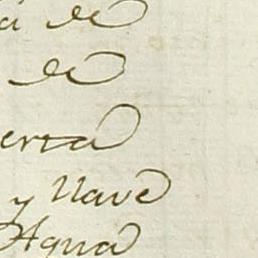 a de
de
erta
y llave
Agua